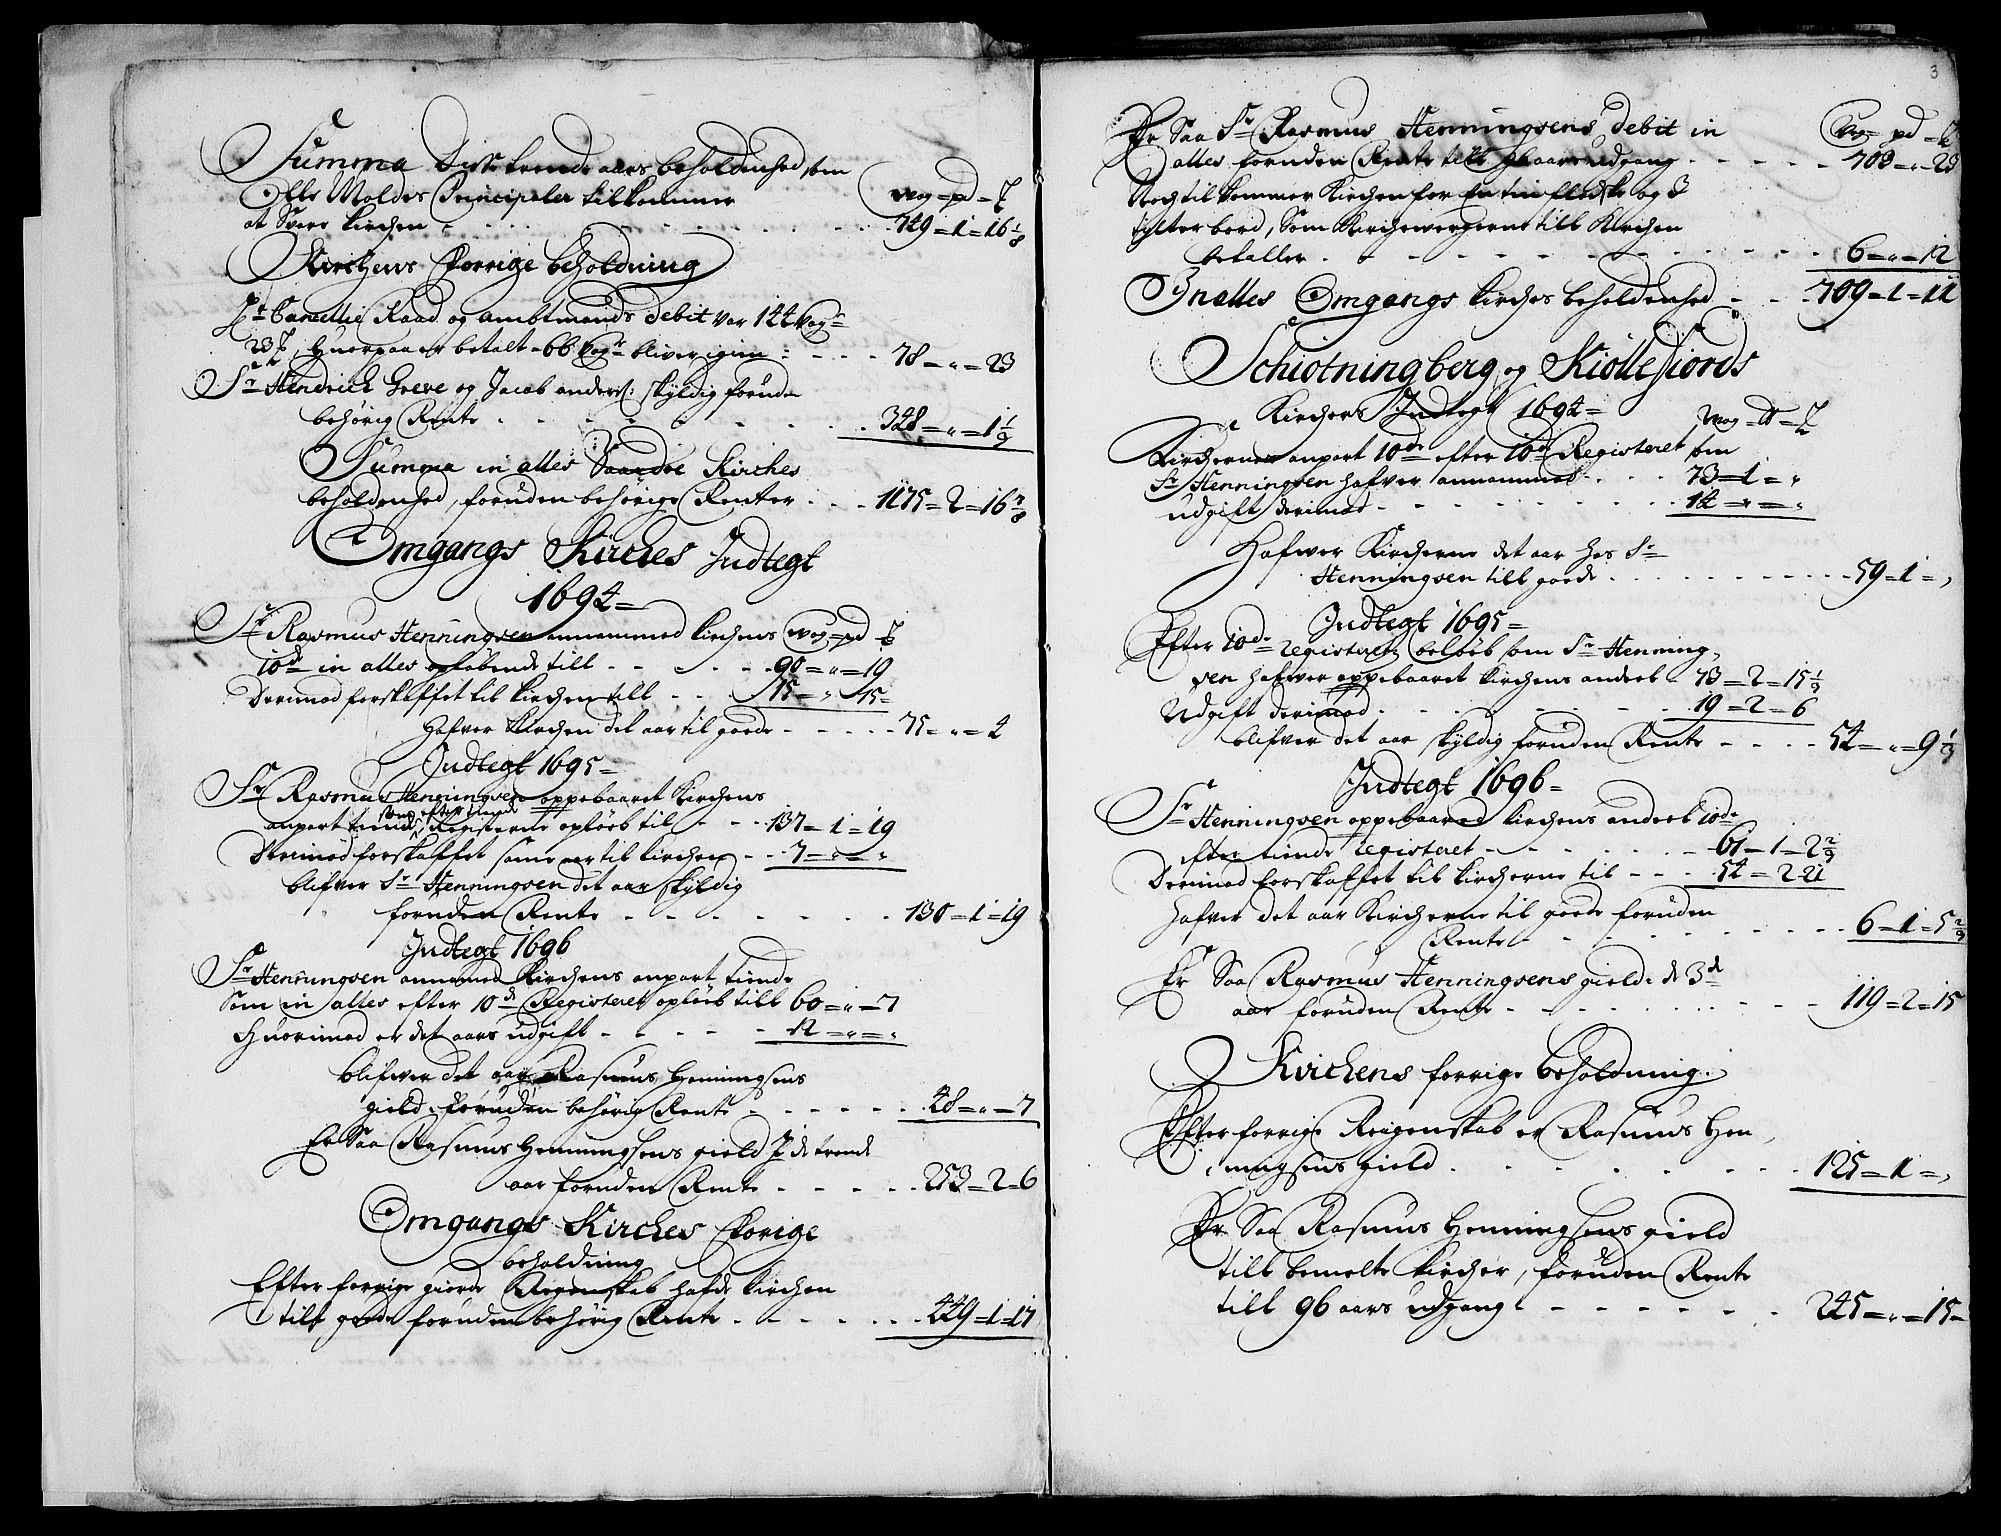 Summa disse trende aars beholdenhed, som
Olle Moldes Principaler tilkommer
at Svare kirchen - - - - - 749 = 1 = 16 1/8
wog = pd = ℔
Kirchens forrige beholdning
Hr Cancellie Raad og ambtmands debit var 144 wogr
23 ℔ huorpaa er betalt - 66 wogr bliver igien - - - 78 = „ = 23
Sr Hendrich Greve og Jacob anders: skyldig foruden
behörig Rente - - - - - 348 = „ = 1 1/9
Summa in alles Kirches
beholdenhed, foruden behörige Renter - - - 1175 = 2 = 16 7/8
Omgangs Kirches Indtegt
1694 =
Sr Rasmus Henningsen annammed kirchens wog = pd = ℔
10de in alles opløbende till - - - - 90 = „ = 19
Derimod forskaffet til kirchen till - - 15 = „ 15 =
hafver kirchen det aar til goede - - - - - 75 = „ = 4
Indtegt 1695 =
Sr Rasmus Henningsen oppebaaret kirchens
som efter tiende
anpart tiende, Registerne opløeb til - - - 137 = 1 = 19
Derimod forskaffet samme aar til kirchen - - 7 = „ = „
blifver Sr Henningsen det aar skyldig
foruden Rente - - - - - - - 130 = 1 = 19
Indtegt 1696
Sr Henningsen annamed kirchens anpart tiende
Som in alles efter 10de Registeret opløeb till 60 = „ = 7
huorimod er det aars udgift - - - - 12 = „ = „
blifver det aar Rasmus Henningsens
gield foruden behörig Rente - - - - - 48 = „ = 7
Er Saa Rasmus Henningsens gield i de trende
aar foruden Rente - - - - - 253 = 2 = 6
Omgangs Kirches forige
beholdning
Efter forrige giorde Regenskab hafde kirchen
till goede foruden behörig Rente - - - - - 449 = 1 = 17
3
Er Saa Sr Rasmus Henningsens debit in wog = pd = ℔
alles foruden Rente till 96 aars udgang - - - - - 703 = „ = 23
Noch tilkommer kirchen for En tin fladske og 3
tylter bord, Som kirchewergerne till kirchen
betaller - - - - - - - - 6 = „ = 12
Inalles Omgangs kirches beholdenhed - - - 709 = 1 = 11
Schiotningberg og Kiøllefiords
Kirchers Indtegt 1694 = wog = pd = ℔
Kirchernes anpart 10de efter 10de Registeret som
Sr Henningsen hafver annammed - - - 73 = 1 = „
udgift derimod - - - - - - - 14 = „ = „
Hafwer kircherne det aar hos Sr
Henningsen till goede - - - - - - - 59 = 1 = „
Indtegt 1695 =
Efter 10de registeret beløeb som Sr Henning,
sen hafwer oppebaaret kirchens andeel - 73 = 2 = 15 1/3
Udgift derimod - - - - - - - 19 = 2 = 6
blifver det aar skyldig foruden Rente - - - - 54 = „ = 9 1/3
Indtegt 1696 =
Sr Henningsen oppebaared kirchens andeel 10de
efter tiende registeret - - - - - - 61 = 1 = 2 2/9
Derimod forskaffet til kircherne til - - - 54 = 2 21
hafver det aar kircherne til goede foruden
Rente - - - - - - - 6 = 1 = 5 2/9
Er Saa Rasmus Henningsens gield i de 3de
aar foruden Rente - - - - - - - 119 = 2 = 15
Kirchens forrige beholdning
Efter forrige Reigenskab er Rasmus Hen,
ningsens gield - - - - - - - 125 = 1 = „
Er Saa Rasmus Henningsens gield
till bemelte kircher, foruden Rente
till 96 aars udgang - - - - - - 245 = „ = 15 =